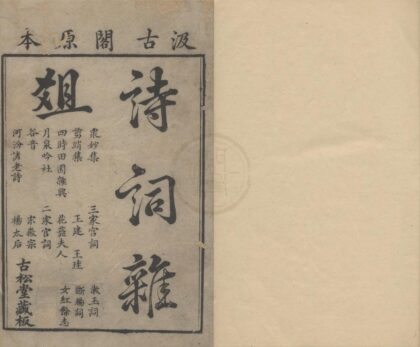 汲古閣原本
詩詞雜
爼
衆妙集 三家宮詞 漱玉詞
翦綃集 王建 王珪 斷腸詞
四時田園雜興 花蕊夫人 女紅餘志
月泉吟社 二家宮詞
谷音 宋徽宗
河汾諸老詩 楊太后
古松堂藏板